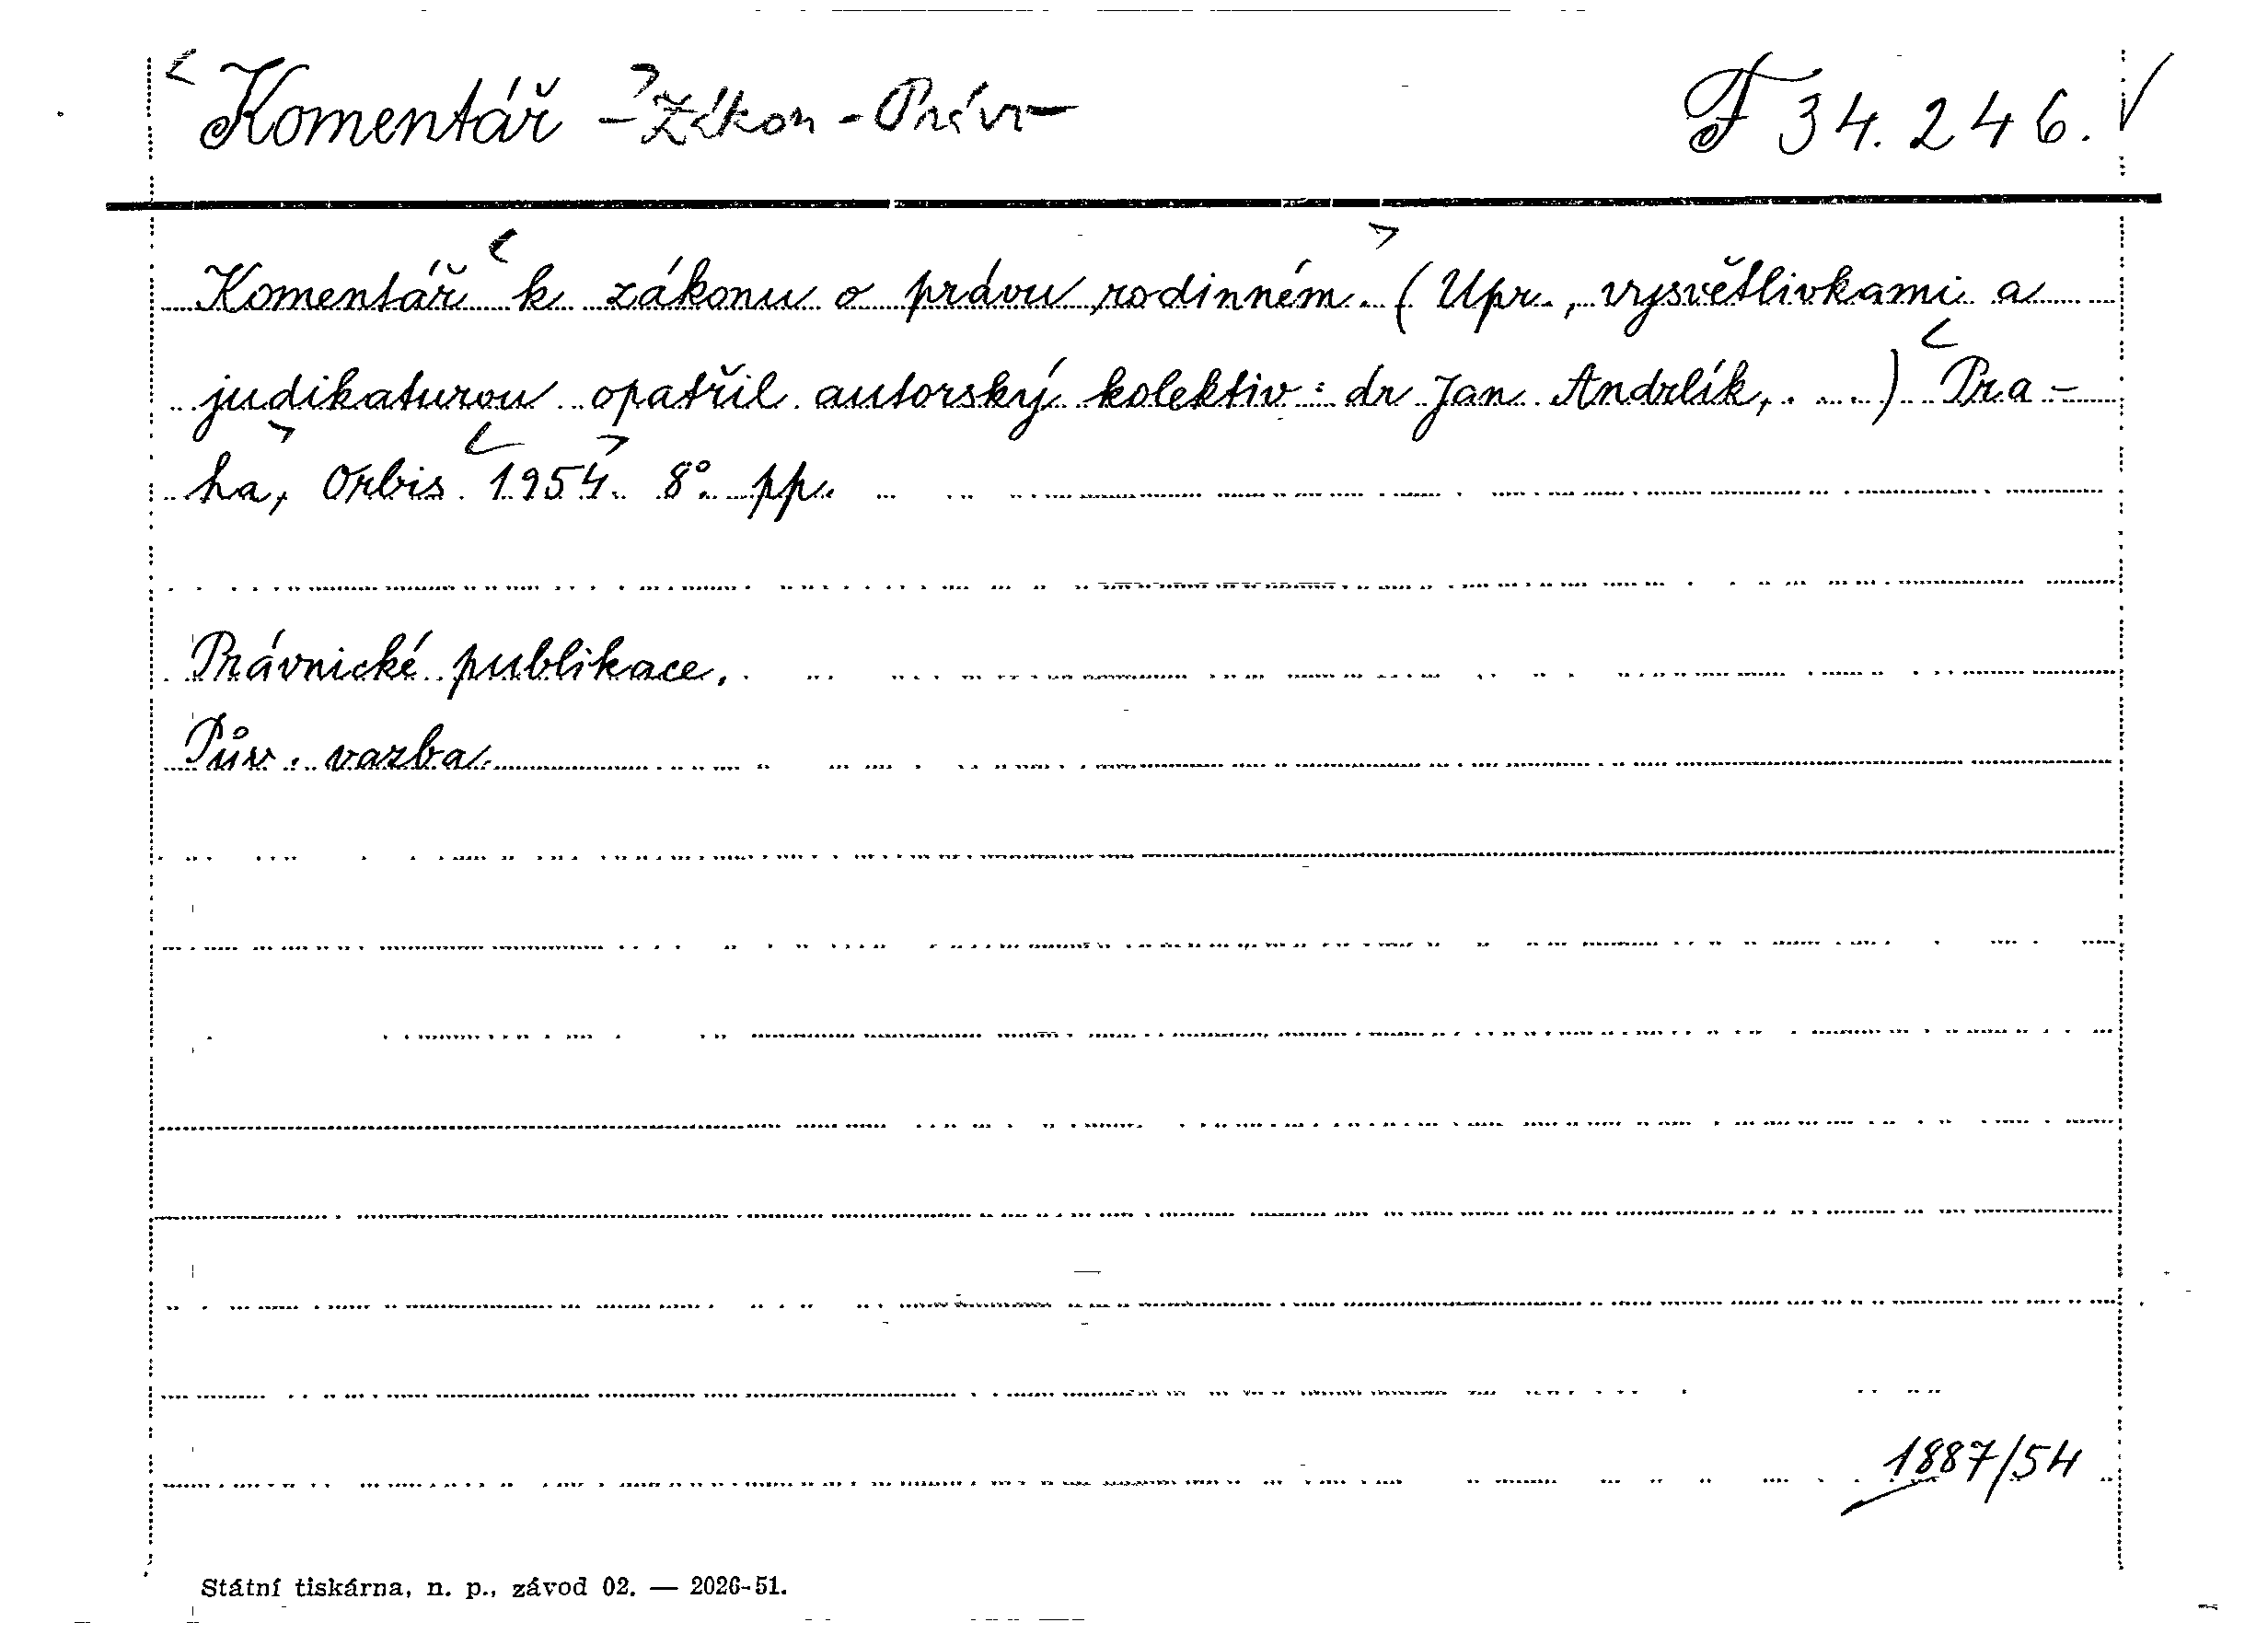 Komentář - Zákon - Právo
F 34.246.
Komentář k zákonu o právu rodinném. (Upr., vysvětlivkami a
judikaturou opatřil autorský kolektiv: dr Jan Andrlík, ....) Pra-
ha, Orbis 1954. 8° pp.
Právnické publikace.
Pův. vazba.
1887/54
Státní tiskárna, n. p., závod 02. — 2026-51.